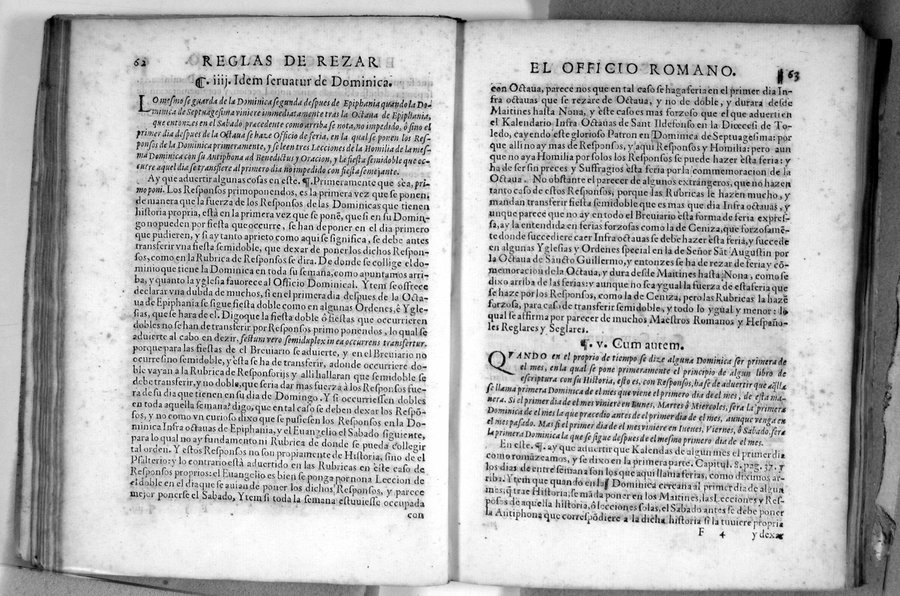 62 REGLAS DE REZAR
¶. iiij. Idem seruatur de Dominica.
LO mesmo se guarda de la Dominica segunda despues de Epiphania quando la Do-
minica de Septuagesima viniere immediatamente tras la Octaua de Epiphania,
que entonces en el Sabado precedente como arriba se nota, no impedido, ò sino el
primer dia despues de la Octaua se haze Officio de feria, en la qual se ponen los Res-
ponsos de la Dominica primeramente, y se leen tres Lecciones de la Homilia de la mes-
ma Dominica con su Antiphona ad Benedictus y Oracion, y la fiesta semidoble que oc-
curre aquel dia se transfiere al primero dia no impedido con fiesta semejante.
Ay que aduertir algunas cosas en este. ¶. Primeramente que sea, pri-
mo poni. Los Responsos primoponendos, es la primera vez que se ponen,
de manera que la fuerza de los Responsos de las Dominicas que tienen
historia propria, està en la primera vez que se ponē, que si en su Domin-
go no pueden por fiesta que occurre, se han de poner en el dia primero
que pudieren, y si ay tanto aprieto como aqui se significa, se debe antes
transferir vna fiesta semidoble, que dexar de poner los dichos Respon-
sos, como en la Rubrica de Responsos se dira. De donde se collige el do-
minio que tiene la Dominica en toda su semana, como apuntamos arri-
ba, y quanto la yglesia fauorece al Officio Dominical. Ytem se offresce
declarar vna dubda de muchos, si en el primer dia despues de la Octa-
ua de Epiphania se sigue fiesta doble como en algunas Ordenes, è Ygle-
sias, que se hara de el. Digo que la fiesta doble ò fiestas que occurrieren
dobles no se han de transferir por Responsos primo ponendos, lo qual se
aduierte al cabo en dezir, festum vero semiduplex in ea occurens transfertur,
porque para las fiestas de el Breuiario se aduierte, y en el Breuiario no
occurre sino semidoble, y esta se ha de transferir, adonde occurriere do-
ble vayan a la Rubrica de Responsorijs y alli hallaran que semidoble se
debe transferir, y no doble, que seria dar mas fuerza à los Responsos fue-
ra de su dia que tienen en su dia de Domingo. Y si occurriessen dobles
en toda aquella semana? digo, que en tal caso se deben dexar los Respō-
sos, y no como vn curioso dixo que se pusiessen los Responsos en la Do-
minica Infra octauas de Epiphania, y el Euangelio el Sabado siguiente,
para lo qual no ay fundamento ni Rubrica de donde se pueda collegir
tal orden. Y estos Responsos no son propiamente de Historia, sino de el
Psalterio; y lo contrario està aduertido en las Rubricas en este caso de
Responsos proprios: el Euangelio es bien se ponga por nona Leccion de
el doble en el dia que se auian de poner los dichos Responsos, y parece
mejor ponerse el Sabado, Ytem si toda la semana estuuiesse occupada
con
EL OFFICIO ROMANO. 63
con Octaua, parece nos que en tal caso se haga feria en el primer dia In-
fra octauas que se rezare de Octaua, y no de doble, y durara desde
Maitines hasta Nona, y este caso es mas forzoso que el que aduierten
el Kalendario Infra Octauas de Sant Ildefonso en la Dioecesi de To-
ledo, cayendo este glorioso Patron en Dominica de Septuagesima: por
que alli no ay mas de Responsos, y aqui Responsos y Homilia: pero aun
que no aya Homilia por solos los Responsos se puede hazer esta feria; y
ha de ser sin preces y Suffragios esta feria por la commemoracion de la
Octaua. No obstante el parecer de algunos extrangeros, que no hazen
tanto caso de estos Responsos, porque las Rubricas le hazen mucho, y
mandan transferir fiesta semidoble que es mas que dia Infra octauas, y
aunque parece que no ay en todo el Breuiario esta forma de feria expres-
sa, ay la entendida en ferias forzosas como la de Ceniza, que forzosamē-
te donde succediere caer Infra octauas se debe hazer esta feria, y succede
en algunas Yglesias y Ordenes special en la de Señor Sāt Augustin por
la Octaua de Sancto Guillermo, y entonces se ha de rezar de feria y cō-
memoracion de la Octaua, y dura desde Maitines hasta Nona, como se
dixo arriba de las ferias: y aunque no sea ygual la fuerza de esta feria que
se haze por los Responsos, como la de Ceniza, pero las Rubricas la hazē
forzosa, para caso de transferir semidoble, y todo lo ygual y menor: lo
qual se affirma por parecer de muchos Maestros Romanos y Hespaño-
les Reglares y Seglares.
¶. v. Cum autem.
QVANDO en el proprio de tiempo se dize alguna Dominica ser primera de
el mes, en la qual se pone primeramente el principio de algun libro de
escriptura con su Historia, esto es, con Responsos, ha se de aduertir que aq̄lla
se llama primera Dominica de el mes que viene el primero dia de el mes, de esta ma-
nera. Si el primer dia de el mes viniere en Lunes, Martes ò Miercoles, sera la primera
Dominica de el mes la que precedio antes de el primer dia de el mes, aunque venga en
el mes passado. Mas si el primer dia de el mes viniere en Iueues, Viernes, ò Sabado, sera
la primera Dominica la que se sigue despues de el mesmo primero dia de el mes.
En este. ¶. ay que aduertir que Kalendas de algun mes el primer dia
como romazeamos, y se dixo en la primera parte. Capitul. 8. pag. 37. y
los dias de entre semana son los que aqui llama ferias, como diximos ar-
riba. Ytem que quando en la Dominica cercana al primer dia de algun
mes, q̄ trae Historia, se māda poner en los Maitines, las Lecciones y Res-
ponsos de aquella historia, ò lecciones solas, el Sabado antes se debe poner
la Antiphona que correspōdiere a la dicha historia si la tuuiere propria
F 4 y dexar